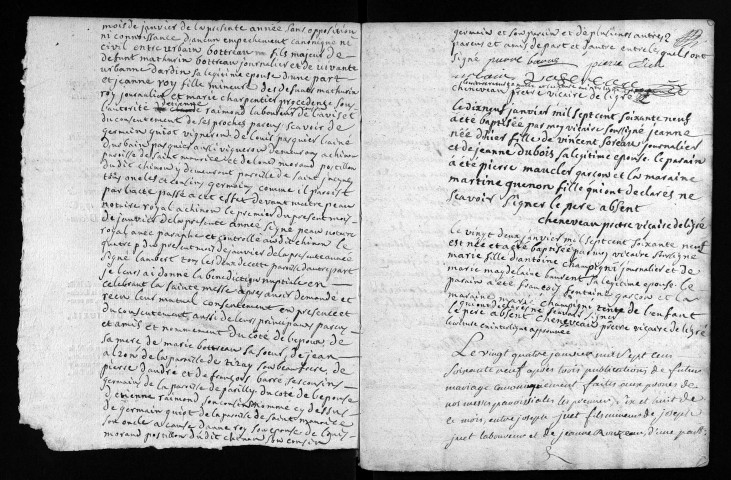 mois de janvier de la presente année sans opposition
ni connoissance d'aucun empechement canonique ne
civil entre urbain bottreau fils majeur de
defunt mathurin bottreau journalier et de vivante
urbanne dardin sa legitime epouse d'une part
et jeanne roy fille mineure des defunts mathurin
roy journalier et marie charpentier procedente sous
l'autorité d'etienne raimond laboureur de l'avis et
du consentement de ses proches parens scavoir de
germain guiot vigneron de louis pasquier
d'urbain pasquier aussi vigneron demeurans a chinon
paroisse de saint maurice et de louis morand postillon
du dit chinon y demeurant paroisse de saint
ses oncles et cousins germains comme il paroist
par l'acte passé a cet effet devant notre peau
notaire royal a chinon le premier du present mois
de janvier de la presente année signé peau notaire
royal avec paraphe et controllé au dit chinon le
quatre du present mois de janvier de la presente année
signé lambert tous les deux de cette paroisse d'autre part
je leurs ai donné la benediction nuptiale en
celebrant la sainte messe apres avoir demandé et
receu leur mutuel consentement en presence et
du consentement aussi de leurs principaux parens
et amis et nommement du côté de l'epoux de
sa mere de marie bottreau sa soeur de jean
de la paroisse de tizay son beau frere de
pierre dandre et de françois barre ses cousins
germains de la paroisse de parilly du coté de l'epouse
d'etienne raimond son cousin nommé cy dessus
de germain guiot de la paroisse de saint maurice
son oncle a cause d'anne roy son epouse de louis
morand postillon du dit chinon son cousin
germain et son parain et de plusieurs autres
parens et amis de part et d'autre entre lesquels ont
signé pierre barre pierre
cheneveau pretre vicaire de ligré
le dixneuf janvier mil sept cent soixante neuf
a été baptisée par moy vicaire soussigné jeanne
née d'hier fille de vincent soreau journalier
et de jeanne dubois sa legitime epouse le parain
a été pierre mauclerc garcon et la maraine
martine guenon fille qui ont declarés ne
scavoir signer le pere absent
cheneveau pretre vicaire de ligré
le vingt deux janvier mil sept cent soixante neuf
est née et a été baptisée par moy vicaire soussigné
marie fille d'antoine champigni journalier et de
marie magdelaine laurent sa legitime epouse le
parain a été françois fontaine garcon et la
maraine marie champigni tente de l'enfant
qui ont declarés ne scavoir signer
le pere absent cheneveau pretre vicaire de ligré
Le vingt quatre janvier mil sept cent
soixante neuf apres trois publications de futur
mariage canoniquement faites aux prones de
nos messes paroissiales les premier, six et huit de
ce mois, entre joseph juet fils mineur de joseph
juet laboureur et de jeanne d'une part